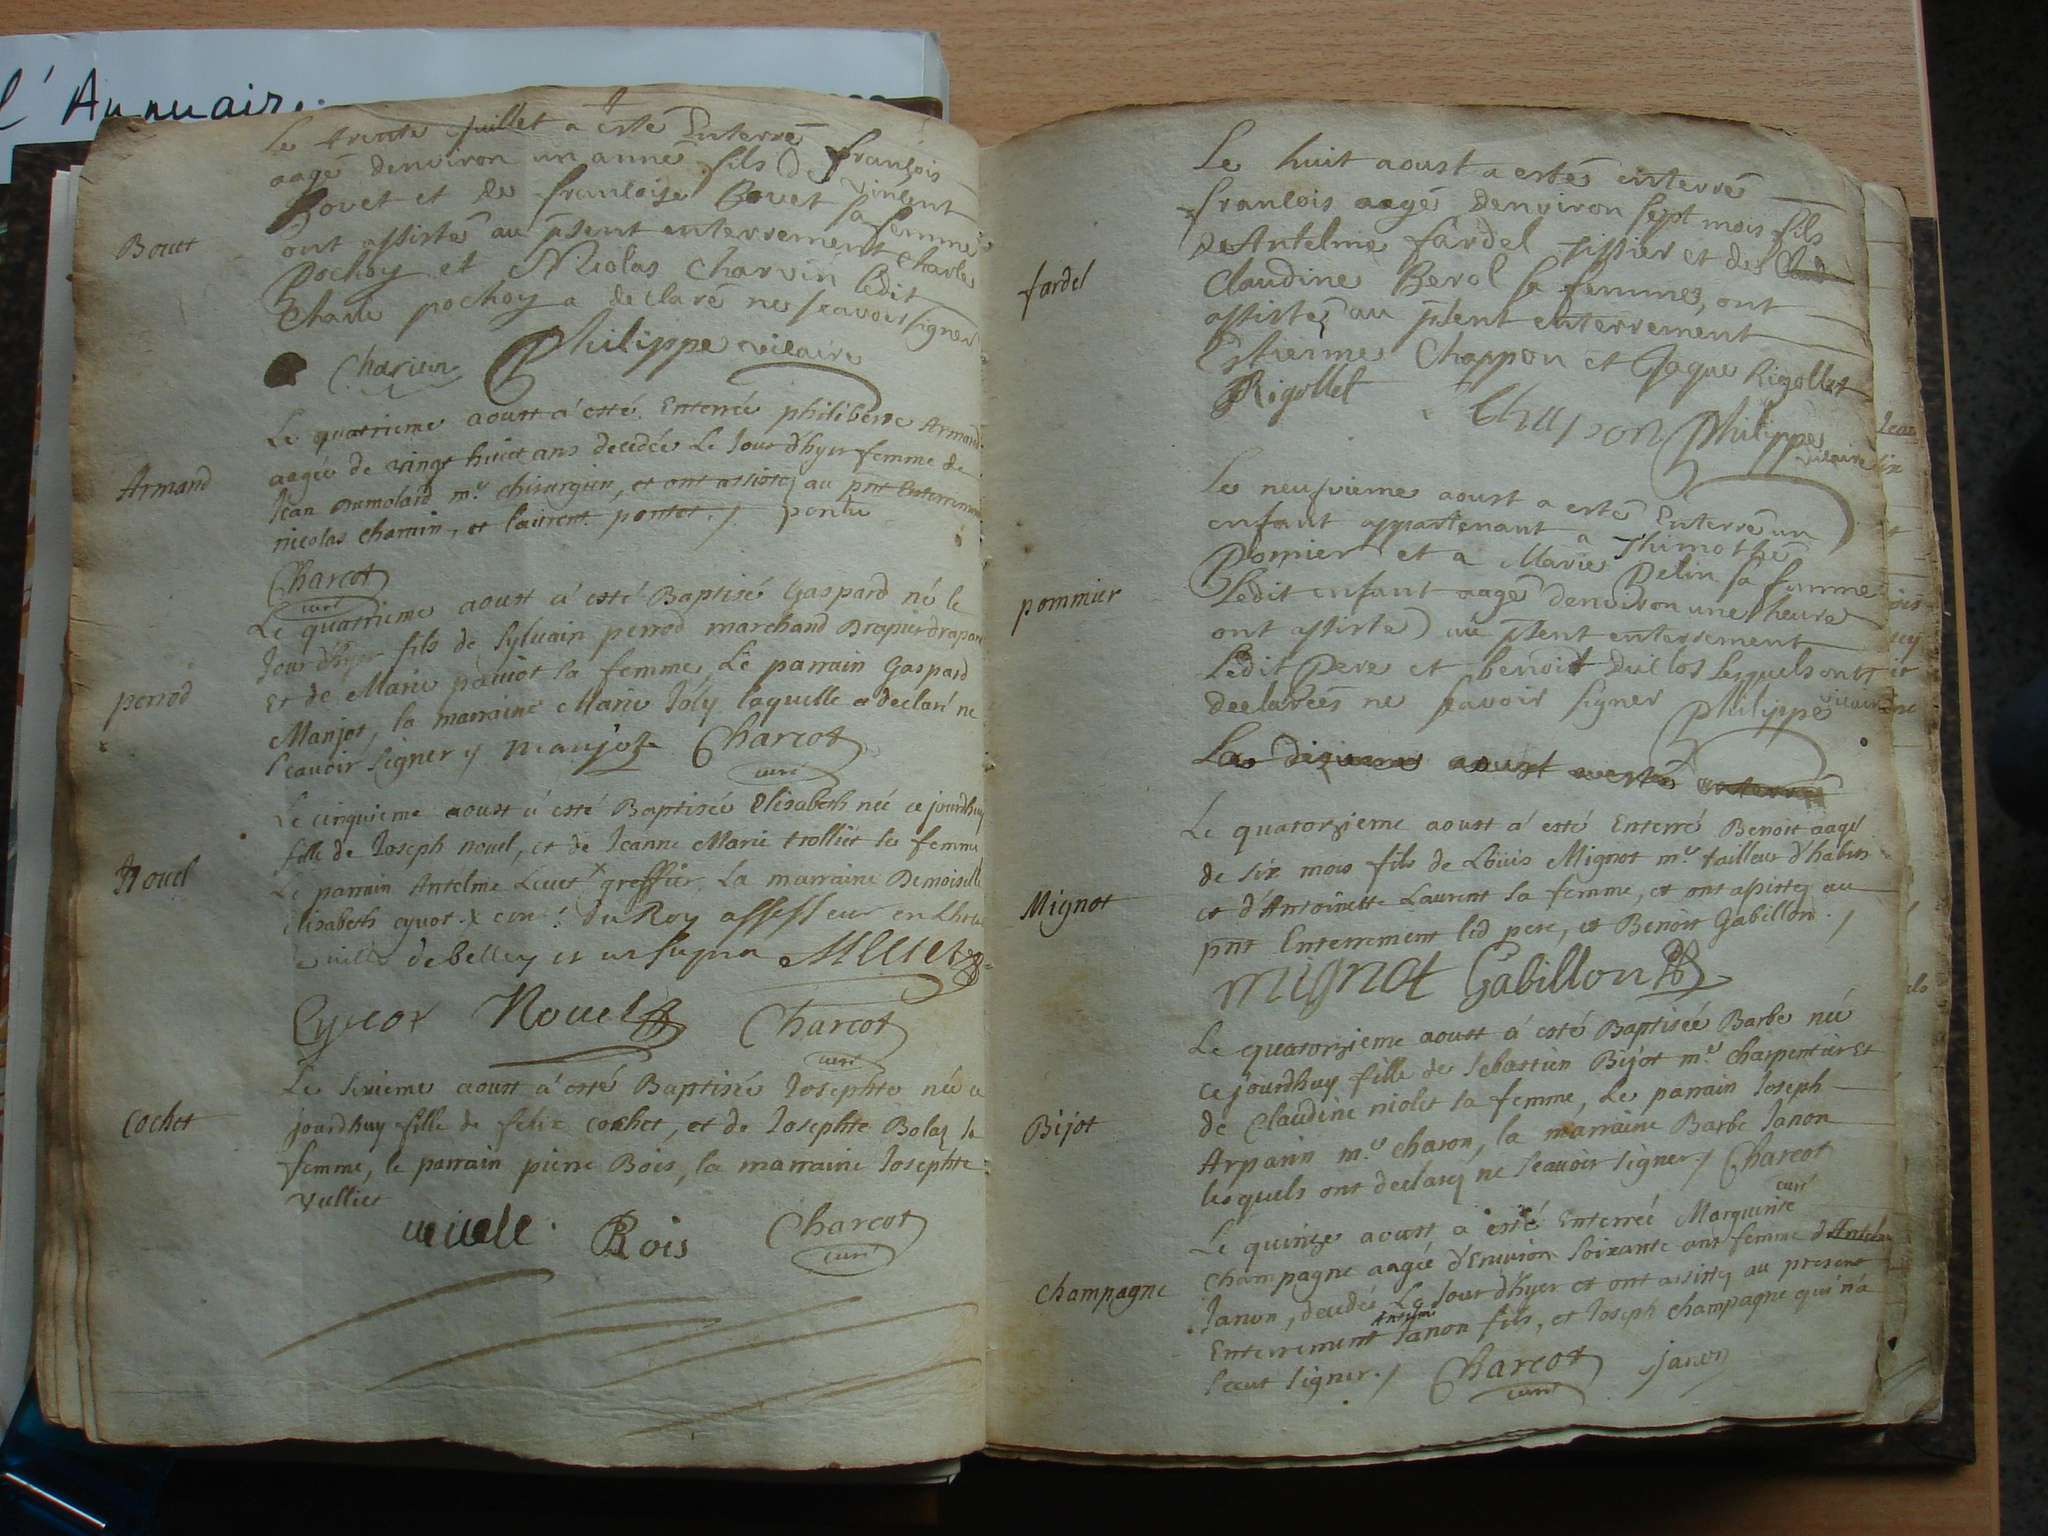 l'Annuaire
Le trente juillet a esté Enterré
aagé denviron un année fils de françois
Bovet et de francoise Bovet sa femme
ont assisté au psent enterrement Charle
Pochoy et Nicolas Charvin Ledit
Charle pochoy a declaré ne scavoir signer
Philippe vicaire
Bovet
Le quatrieme aoust a esté Enterrée philiberte Armand
aagée de vingt huict ans decedée Le Jour d'hyer femme de
Jean Dumolard me chirurgien, et ont assistez au pnt Enterrement
nicolas chamin, et laurent pontet./.
Charcot
curé
Armand
Le quatrieme aoust a esté Baptisé Gaspard né le
Jour d'hyer fils de Sylvain perrod marchand Drapier drapant
Et de Marie paviot sa femme, Le parrain Gaspard
Manjot, la marraine Marie Joly laquelle a declaré ne
scavoir signer manjot Charcot
curé
perrod
Le cinquieme aoust a esté Baptisée Elisabeth née ce jourdhuy
fille de Joseph novel, et de Jeanne Marie trollier sa femme
Le parrain Antelme x greffier, La marraine Demoiselle
Elisabeth cyvot. x du Roy assesseur en
ville de belley et
Novel
Cyvot Novel Charcot
curé
Le sixieme aoust a esté Baptisée Josephte née ce
jourdhuy fille de felix cochet, et de Josephte Bolaz sa
femme, le parrain pierre Bois, la marraine Josephte
vullier
Cochet
Bois Charcot
curé
Le huit aoust a estés enterré
francois aagé denviron sept mois fils
de Antelme fardel tissier et de
Claudine Berol sa femme, ont
assistés au psent enterrement
Estienne Chappon et Jaque Rigollet
Rigollet Chappon Philippe
vicaire
fardel
Le neufvieme aoust a esté Enterré un
enfant appartenant a Thimothé
Pomier et a Marie Pelin sa femme
Ledit enfant aagé denviron une heure
ont assisté au psent enterrement
Ledit Pere et benoit Duclos Lesquels ont
declarées ne scavoir signer Philippe vicaire
pommier
Le dixieme aoust a esté enterré
Le quatorzieme aoust a esté Enterré Benoit aagé
de six mois fils de Loüis Mignot me tailleur d'habits
et d'Antoinette Laurent sa femme, et ont assistez au
pnt Enterrement led pere, et Benoit Gabillon./
Mignot
mignot Gabillon
Le quatorzieme aoust a esté Baptisée Barbe née
ce jourdhuy fille de Sebastien Bijot me charpentier Et
de Claudine niolet sa femme, Le parrain Joseph
Arparin me charon, la marraine Barbe Janon
lesquels ont declaré ne scavoir signer./ Charcot
curé
Bijot
Le quinze aoust a esté Enterrée Marguerite
Champagne aagée d'Environ soixante ans femme d'Antelme
Janon, decedée Le Jour d'hyer et ont assistez au present
Enterrement Antelme Janon fils, et Joseph champagne qui n'a
sceut signer./ Charcot janon
curé
Champagne